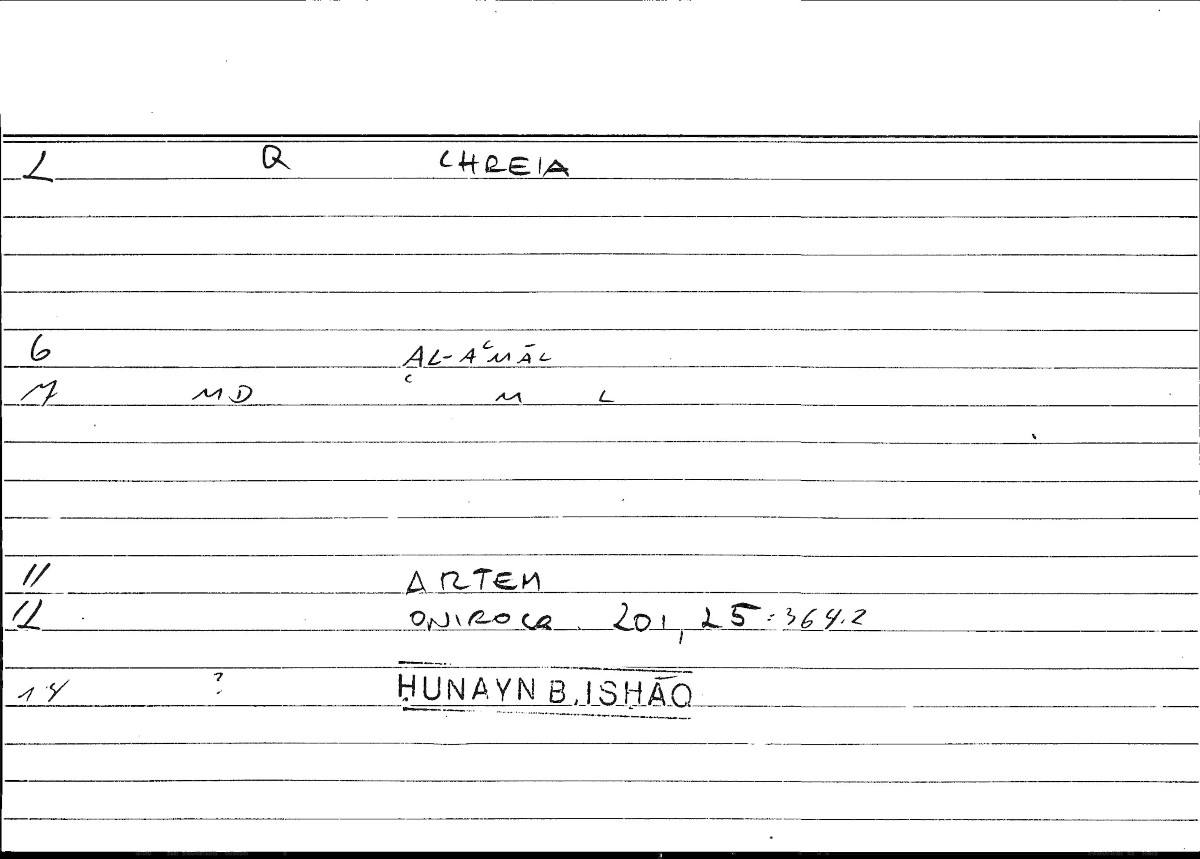 2 Q CHREIA
6 AL-AʿMĀL
7 MD ʿ M L
11 ARTEM
12 ONIROCR. 201, 25:364.2
14 ? ḤUNAYN B. ISḤĀQ